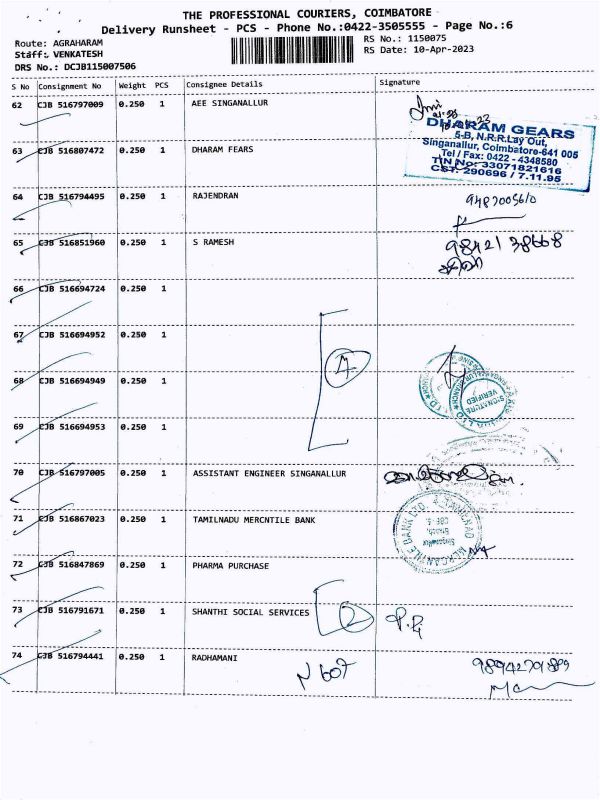 THE PROFESSIONAL COURIERS, COIMBATORE
Delivery Runsheet - PCS - Phone No.:0422-3505555 - Page No.:6
Route: AGRAHARAM
RS No.: 1150075
Staff: VENKATESH
RS Date: 10-Apr-2023
DRS No.: DCJB115007506
S No Consignment No Weight PCS Consignee Details Signature
62 CJB 516797009 0.250 1 AEE SINGANALLUR
63 CJB 516807472 0.250 1 DHARAM FEARS
DHARAM GEARS
5-B, N.R.R.Lay Out,
Singanallur, Coimbatore-641 005
Tel / Fax: 0422 - 4348580
TIN No: 33071821616
CST: 290696 / 7.11.95
64 CJB 516794495 0.250 1 RAJENDRAN
9487005610
65 CJB 516851960 0.250 1 S RAMESH
98421 38668
66 CJB 516694724 0.250 1
67 CJB 516694952 0.250 1
68 CJB 516694949 0.250 1
SIGNATURE
VERIFIED
69 CJB 516694953 0.250 1
70 CJB 516797005 0.250 1 ASSISTANT ENGINEER SINGANALLUR
71 CJB 516867023 0.250 1 TAMILNADU MERCNTILE BANK
TAMILNAD MERCANTILE BANK LTD.
Singanallur
Branch
72 CJB 516847869 0.250 1 PHARMA PURCHASE
73 CJB 516791671 0.250 1 SHANTHI SOCIAL SERVICES
2
74 CJB 516794441 0.250 1 RADHAMANI